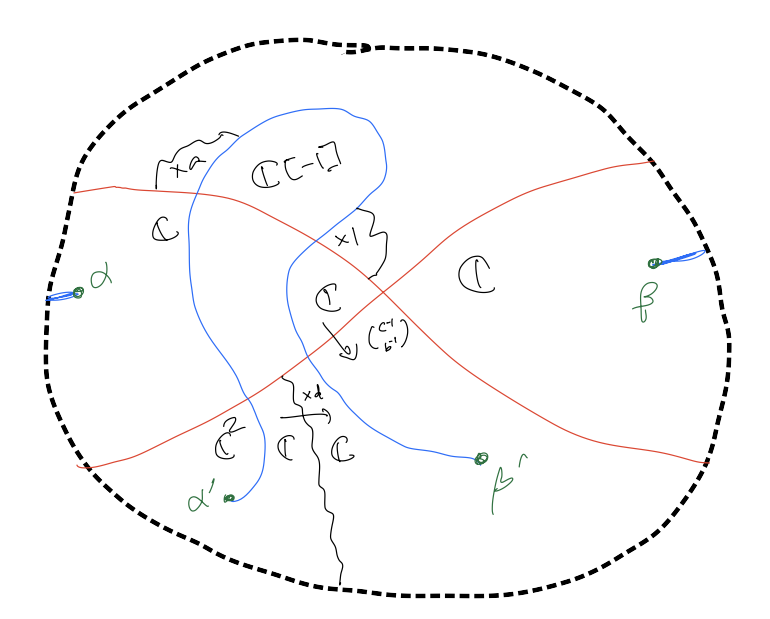 ×a
ℂ[-1]
ℂ
×1
ℂ
α
β
ℂ
(c⁻¹
b⁻¹)
×d
ℂ²
ℂ
ℂ
α'
β'